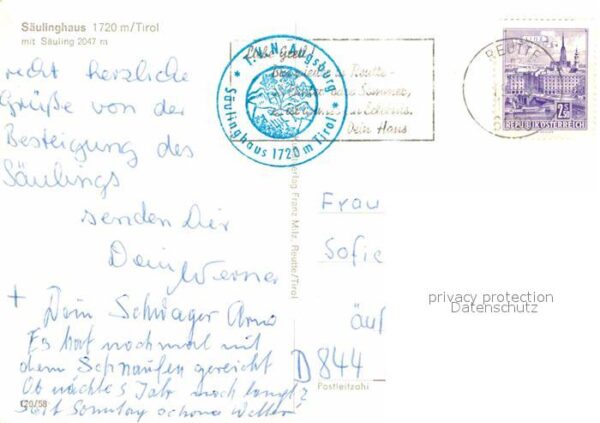 Säulinghaus 1720 m/Tirol
mit Säuling 2047 m
recht herzliche
Grüße von der
Besteigung des
Säulings
senden Dir
Dein Werner
+ Dein Schwager Arno
Es hat nochmal mit
dem Schnaufen gereicht
Ob nächtes Jahr noch langt?
Seit Sonntag schönes Wetter!
120/58
T.V.N.F. Augsburg
Säulinghaus 1720 m Tirol
Dein Hans
REUTTE
2.50
REPUBLIK ÖSTERREICH
Verlag Franz Milz, Reutte/Tirol
Frau
Sofie
äuf
D 844
Postleitzahl
privacy protection
Datenschutz